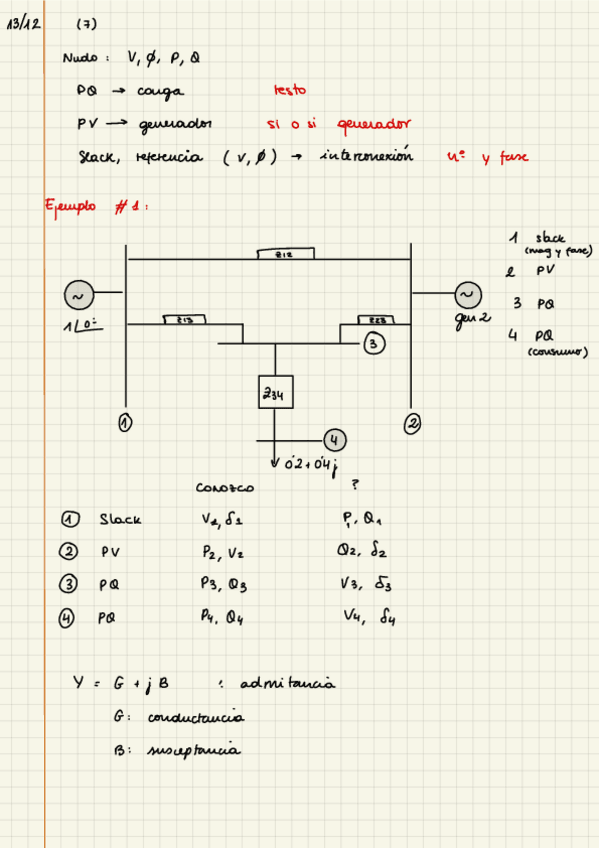 13/12 (7)
Nudo: V, ϕ, P, Q
PQ → carga resto
PV → generador si o si generador
Slack, referencia (V, ϕ) → interconexión nº y fase
Ejemplo #1:
1 slack
(mag y fase)
2 PV
3 PQ
4 PQ
(consumo)
Z12
~
1∠0º
Z13
Z23
~
gen 2
3
Z34
1
2
4
0'2+0'4j
CONOZCO ?
1 Slack V1, δ1 P1, Q1
2 PV P2, V2 Q2, δ2
3 PQ P3, Q3 V3, δ3
4 PQ P4, Q4 V4, δ4
Y = G + j B : admitancia
G: conductancia
B: susceptancia